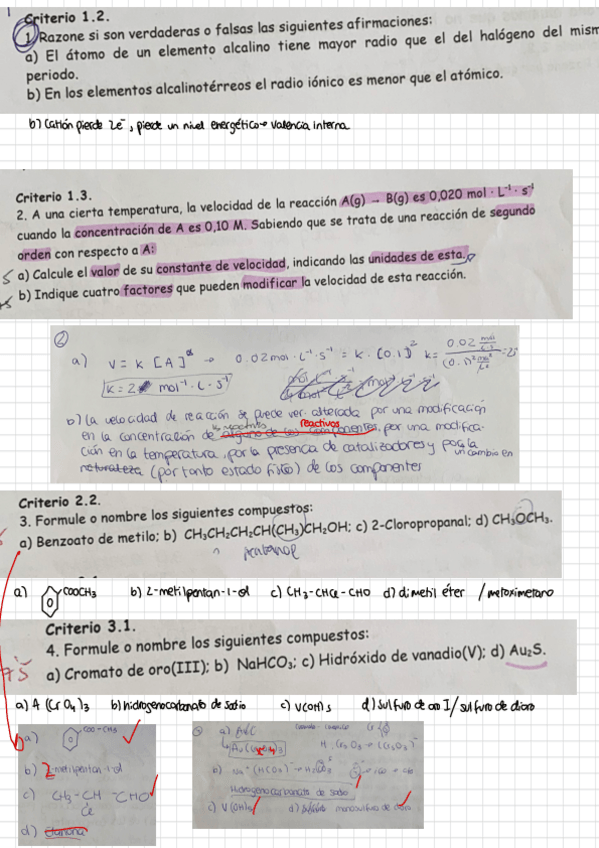 Criterio 1.2.
1. Razone si son verdaderas o falsas las siguientes afirmaciones:
a) El átomo de un elemento alcalino tiene mayor radio que el del halógeno del mism
periodo.
b) En los elementos alcalinotérreos el radio iónico es menor que el atómico.
b) Catión pierde 2e⁻, pierde un nivel energético → valencia interna
Criterio 1.3.
2. A una cierta temperatura, la velocidad de la reacción A(g) → B(g) es 0,020 mol · L⁻¹ · s⁻¹
cuando la concentración de A es 0,10 M. Sabiendo que se trata de una reacción de segundo
orden con respecto a A:
a) Calcule el valor de su constante de velocidad, indicando las unidades de esta.
b) Indique cuatro factores que pueden modificar la velocidad de esta reacción.
2
a) V = K [A]^α → 0.02 mol · L⁻¹ · s⁻¹ = K · [0.1]² K =
K = 2 mol⁻¹ · L · s⁻¹
b) La velocidad de reacción se puede ver alterada por una modificación
en la concentración de los reactivos reactivos, por una modifica-
ción en la temperatura, por la presencia de catalizadores y por la un cambio en
naturaleza (por tanto estado físico) de los componentes
Criterio 2.2.
3. Formule o nombre los siguientes compuestos:
a) Benzoato de metilo; b) CH₃CH₂CH₂CH(CH₃)CH₂OH; c) 2-Cloropropanal; d) CH₃OCH₃.
a) COOCH₃ b) 2-metilpentan-1-ol c) CH₃-CHCl-CHO d) dimetil éter / metoximetano
Criterio 3.1.
4. Formule o nombre los siguientes compuestos:
a) Cromato de oro(III); b) NaHCO₃; c) Hidróxido de vanadio(V); d) Au₂S.
7'5
a) A (CrO₄)₃ b) hidrogenocarbonato de sodio c) V(OH)₅ d) sulfuro de oro I / sulfuro de dioro
a) COO-CH₃
b) 2-metilpentan-1-ol
c) CH₃-CH-CHO
Cl
d)
a)
b)
Hidrogenocarbonato de sodio
c) V(OH)₅ d) monosulfuro de dioro